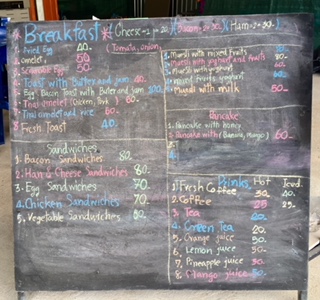 Breakfast (Cheese-2 = 20) (Bacon-2=30) (Ham-2=30)
(Tomato, onion,
1. Fried Egg 40.-
2. omelet 50
3. Scramble Egg 50
4. Toast with Butter and jam 40.
5. Egg Bacon Toast with Buter and Jam 100.
6. Thai omelet (Chicken, Pork) 60.
7. Thai omelet and rice 60.
8. Fish Toast 40.
1. Muesli with mixed fruits
2. Muesli with yoghurt and fruits 80.
3. Muesli with yoghurt 60.
4. mixed fruits yoghurt 60.
5. Muesli with milk 50-
Pancake
1. Pancake with honey
2. Pancake with (Banana, Mango) 60-
3.
4.
Sandwiches
1. Bacon Sandwiches 80.
2. Ham & Cheese Sandwiches 80.
3. Egg Sandwiches 70.
4. Chicken Sandwiches 70.
5. Vegetable Sandwiches 60.
Drinks Hot Iced.
1. Fresh Coffee 30. 40.
2. Coffee 25 25.
3. Tea 20.
4. Green Tea 20.
5. Orange juice 50.
6. Lemon juice 50.
7. Pineapple juice 50.
8. Mango juice 50.